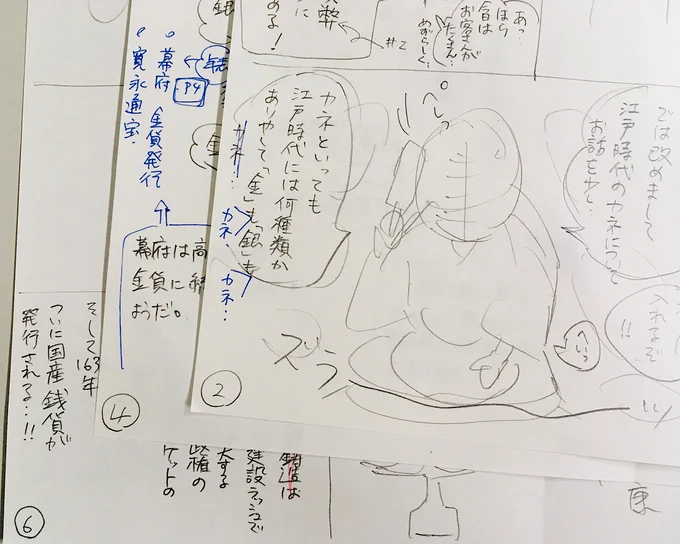 あっ…
ほら
今日は
お客さんが
たくさん…
めずらしく…
#2
める!
では改めまして
江戸時代のカネについて
お話を少し…
入れるぞ
!!
ぺしっ
カネといっても
江戸時代には何種類か
ありやして「金」も「銀」も
カネ…
カネ…
カネ…
へいっ
ズラ
②
銀
P4
幕府 金貨発行
寛永通宝
幕府は高
金貨に
おうだ。
④
そして163年
ついに国産銭貨が
発行される…!!
建設ラッシュで
大する
政権の
ケットの
康
⑥